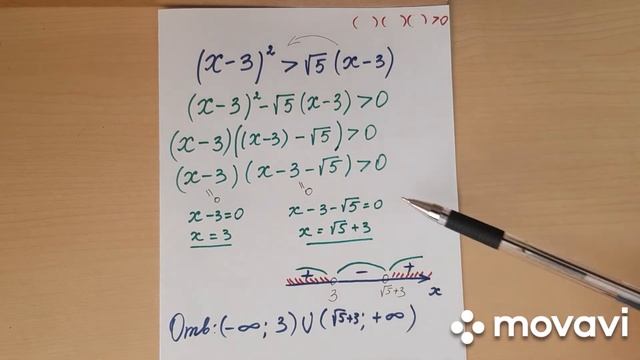 ( )( )( )>0
(x-3)² > √5 (x-3)
(x-3)² - √5 (x-3) > 0
(x-3)((x-3) - √5) > 0
(x-3) (x-3-√5) > 0
=0 =0
x-3=0 x-3-√5=0
x=3 x=√5+3
+ - +
3 √5+3 x
Отв: (-∞; 3) ∪ (√5+3; +∞)
movavi